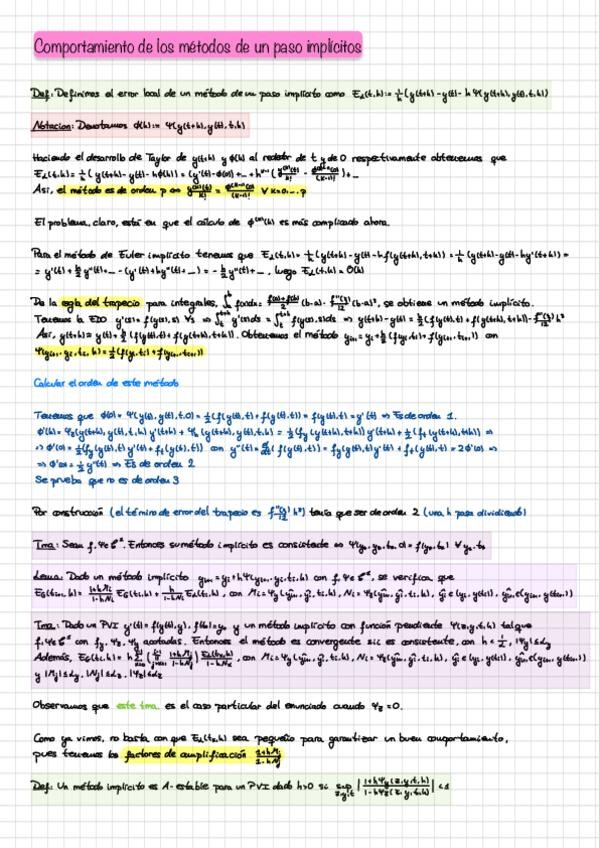 Comportamiento de los métodos de un paso implícitos
Def: Definimos el error local de un método de un paso implícito como E_L(t,h) := 1/h (y(t+h) - y(t) - h Ψ(y(t+h), y(t), t, h))
Notacion: Denotamos ϕ(h) := Ψ(y(t+h), y(t), t, h)
Haciendo el desarrollo de Taylor de y(t+h) y ϕ(h) al rededor de t y de 0 respectivamente obtenemos que
E_L(t,h) = 1/h (y(t+h) - y(t) - hϕ(h)) = (y'(t) - ϕ(0)) + … + h^(k-1) (y^(k)(t)/k! - ϕ^(k-1)(0)/(k-1)!) + …
Asi, el método es de orden p ⇔ y^(k)(t)/k! = ϕ^(k-1)(0)/(k-1)! ∀ k=0,…,p
El problema, claro, está en que el cálculo de ϕ^(k)(h) es más complicado ahora.
Para el método de Euler implícito tenemos que E_L(t,h) = 1/h (y(t+h) - y(t) - h f(y(t+h), t+h)) = 1/h (y(t+h) - y(t) - h y'(t+h)) =
= y'(t) + h/2 y''(t) + … - (y'(t) + h y''(t) + …) = - h/2 y''(t) + …, luego E_L(t,h) = O(h)
De la regla del trapecio para integrales, se obtiene un método implícito.
Tenemos la EDO y'(s) = f(y(s), s) ∀s ⇒
Asi, y(t+h) = y(t) + h/2 (f(y(t),t) + f(y(t+h), t+h)). Obtenemos el método y_{i+1} = y_i + h/2 (f(y_i,t_i) + f(y_{i+1}, t_{i+1}))
con
Ψ(y_{i+1}, y_i, t_i, h) = 1/2 (f(y_i, t_i) + f(y_{i+1}, t_{i+1}))
Calcular el orden de este método
Tenemos que ϕ(0) = Ψ(y(t), y(t), t, 0) = 1/2 (f(y(t),t) + f(y(t),t)) = f(y(t),t) = y'(t) ⇒ Es de orden 1.
ϕ'(h) = Ψ_z(y(t+h), y(t), t, h) y'(t+h) + Ψ_h(y(t+h), y(t), t, h) = 1/2 (f_y(y(t+h), t+h)) y'(t+h) + 1/2 (f_t(y(t+h), t+h)) ⇒
⇒ ϕ'(0) = 1/2 (f_y(y(t),t) y'(t) + f_t(y(t),t)) con y''(t) = d/dt (f(y(t),t)) = f_y(y(t),t) y'(t) + f_t(y(t),t) = 2ϕ'(0) ⇒
⇒ ϕ'(0) = 1/2 y''(t) ⇒ Es de orden 2
Se prueba que no es de orden 3
Por construcción (el término de error del trapecio es f''(ξ)/12 h³) tenía que ser de orden 2 (una h pasa dividiendo)
Tma: Sean f, Ψ ∈ . Entonces su método implícito es consistente ⇔ Ψ(y_0, y_0, t_0, 0) = f(y_0, t_0) ∀ y_0, t_0
Lema: Dado un método implícito y_{i+1} = y_i + hΨ(y_{i+1}, y_i, t_i, h) con f, Ψ ∈ , se verifica que
E_G(t_{i+1}, h) = (1+hM_i)/(1-hN_i) E_G(t_i, h) + h/(1-hN_i) E_L(t_i, h), con M_i = Ψ_y(ŷ_{i+1}, ŷ_i, t_i, h), N_i = Ψ_z(ŷ_{i+1}, ŷ_i, t_i, h), ŷ_i ∈ (y_i, y(t_i)), ŷ_{i+1} ∈ (y_{i+1}, y(t_{i+1}))
Tma: Dado un PVI y'(t) = f(y(t), y), f(t_0) = y_0 y un método implícito con función pendiente Ψ(z, y, t, h) tal que
f, Ψ ∈ con f_y, Ψ_z, Ψ_y acotadas. Entonces el método es convergente sii es consistente, con
Además, con M_i = Ψ_y(ŷ_{i+1}, ŷ_i, t_i, h), N_i = Ψ_z(ŷ_{i+1}, ŷ_i, t_i, h), ŷ_i ∈ (y_i, y(t_i)), ŷ_{i+1} ∈ (y_{i+1}, y(t_{i+1}))
Observamos que este tma. es el caso particular del enunciado cuando Ψ_z = 0.
Como ya vimos, no basta con que E_L(t,h) sea pequeño para garantizar un buen comportamiento,
pues tenemos los factores de amplificación (1+hM_i)/(1-hN_i)
Def: Un método implícito es A-estable para un PVI dado h>0 si sup_{z,y,t} |(1+hΨ_y(z,y,t,h))/(1-hΨ_z(z,y,t,h))| < 1